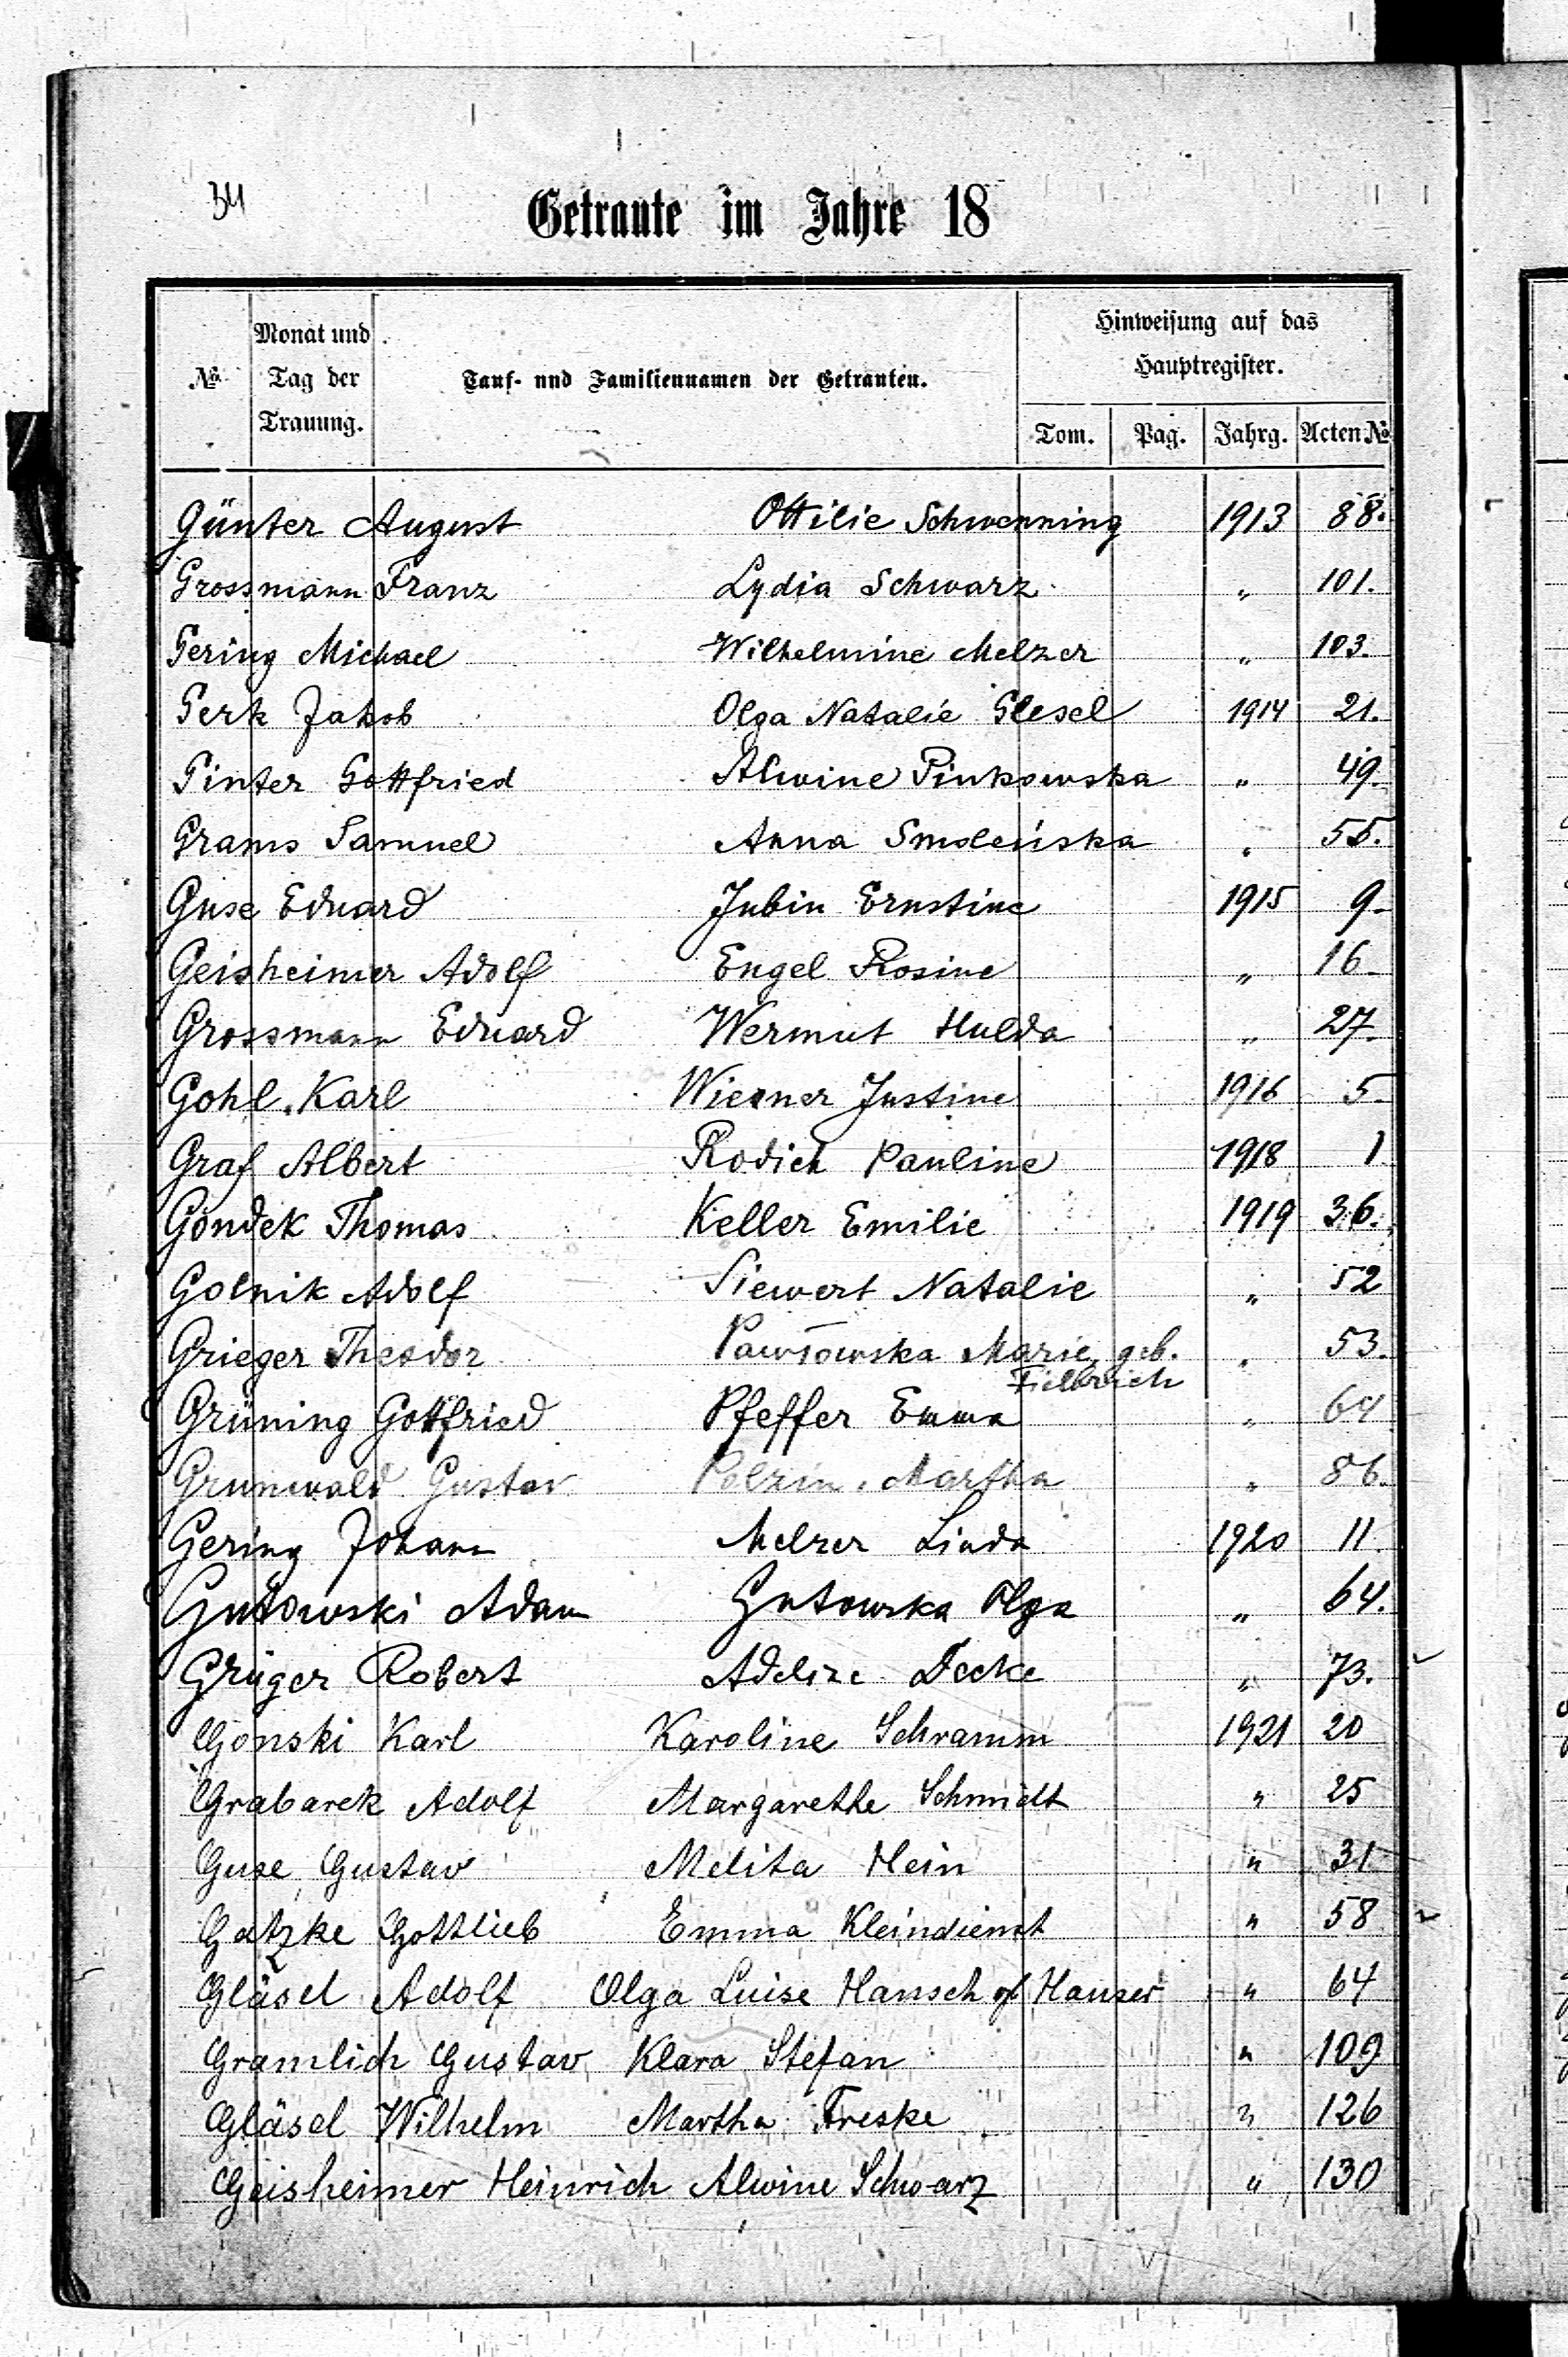 34
Getraute im Jahre 18
№ Monat und Tag der Trauung. Tauf- und Familiennamen der Getrauten. Hinweisung auf das Hauptregister.
Tom. Pag. Jahrg. Acten №
Günter August Ottilie Schwenning 1913 88.
Grossmann Franz Lydia Schwarz " 101.
Gering Michael Wilhelmine Melzer " 103.
Gerk Jakob Olga Natalie Glesel 1914 21.
Ginter Gottfried Alwine Pinkowska " 49.
Grams Samuel Anna Smoleńska " 55.
Guse Eduard Jubin Ernstine 1915 9.
Geisheimer Adolf Engel Rosine " 16.
Grossmann Eduard Wermut Hulda " 27.
Gohl Karl Wiesner Justine 1916 5.
Graf Albert Rodich Pauline 1918 1
Gondek Thomas Keller Emilie 1919 36.
Golnik Adolf Siewert Natalie " 52
Grieger Theodor Pawłowska Marie geb. " 53.
Fielbrich
Grüning Gottfried Pfeffer Emma " 64
Grunwald Gustav Polzin, Martha " 86.
Gering Johann Melzer Linda 1920 11.
Gutowski Adam Gutowska Olga " 64.
Grüger Robert Adeline Decke " 73.
Gonski Karl Karoline Schramm 1921 20
Grabarek Adolf Margarethe Schmidt " 25
Guse Gustav Melita Hein " 31
Gatzke Gottlieb Emma Kleindienst " 58
Gläsel Adolf Olga Luise Hansch gb Hanser " 64
Gramlich Gustav Klara Stefan " 109
Gläsel Wilhelm Martha Freske " 126
Geisheimer Heinrich Alwine Schwarz " 130